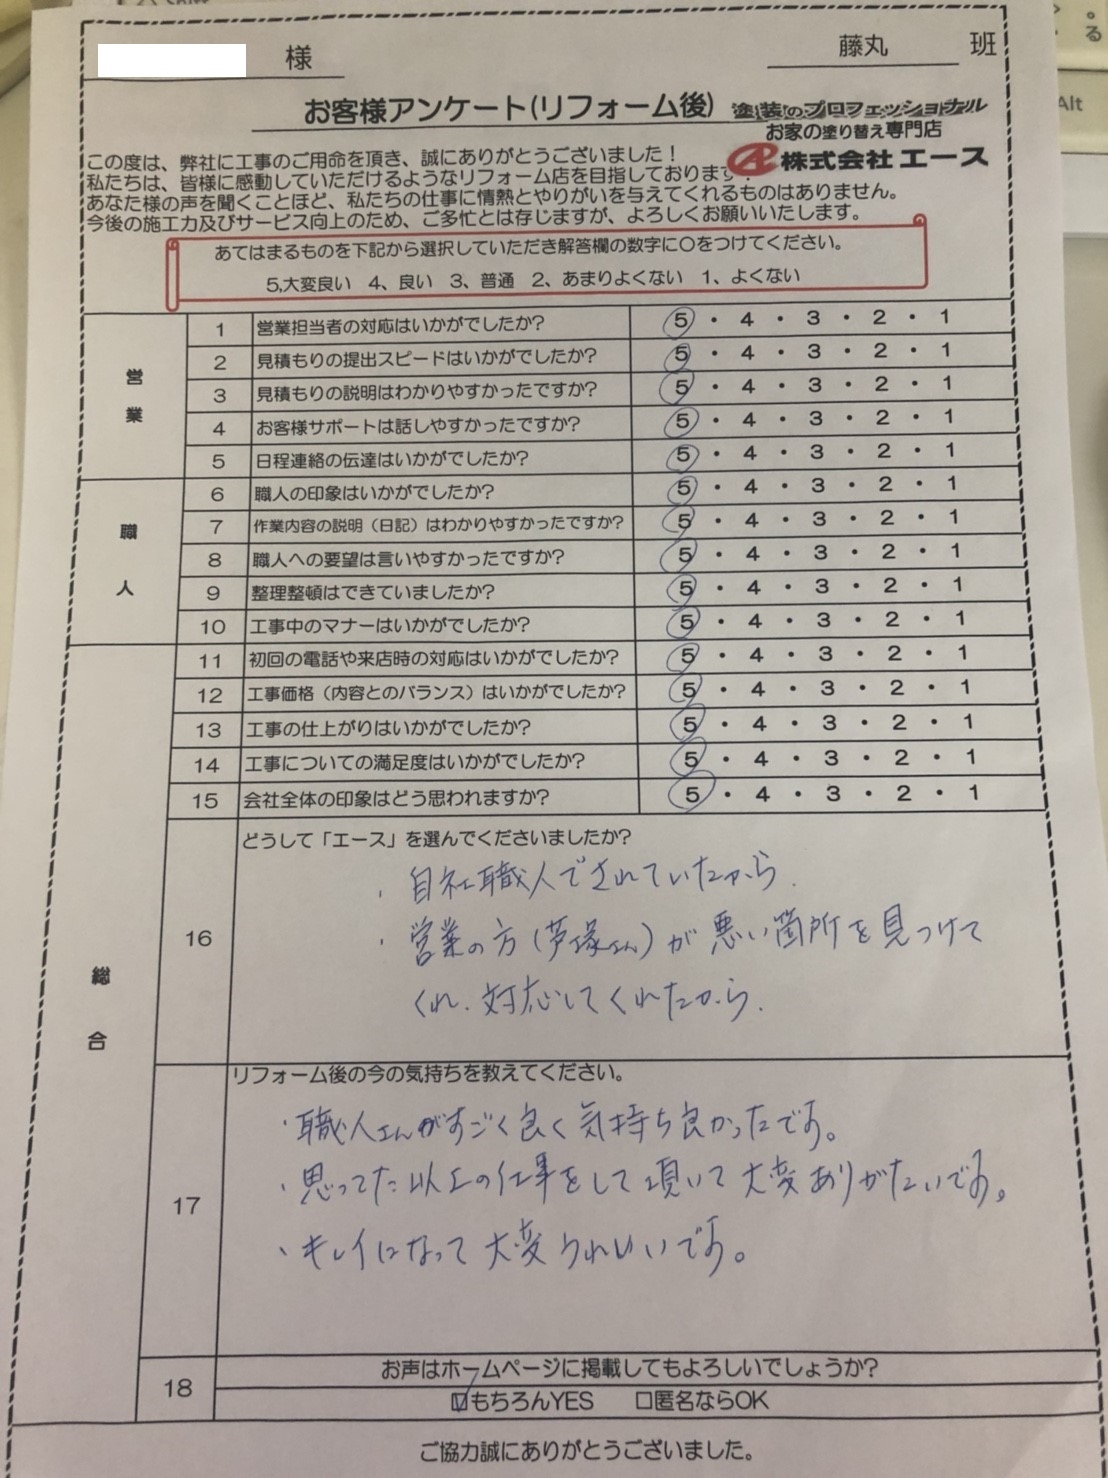 様
藤丸 班
お客様アンケート(リフォーム後)
塗装のプロフェッショナル
お家の塗り替え専門店
株式会社 エース
この度は、弊社に工事のご用命を頂き、誠にありがとうございました!
私たちは、皆様に感動していただけるようなリフォーム店を目指しております!
あなた様の声を聞くことほど、私たちの仕事に情熱とやりがいを与えてくれるものはありません。
今後の施工力及びサービス向上のため、ご多忙とは存じますが、よろしくお願いいたします。
あてはまるものを下記から選択していただき解答欄の数字に〇をつけてください。
5,大変良い 4、良い 3、普通 2、あまりよくない 1、よくない
営業
1 営業担当者の対応はいかがでしたか? 5・4・3・2・1
2 見積もりの提出スピードはいかがでしたか? 5・4・3・2・1
3 見積もりの説明はわかりやすかったですか? 5・4・3・2・1
4 お客様サポートは話しやすかったですか? 5・4・3・2・1
5 日程連絡の伝達はいかがでしたか? 5・4・3・2・1
職人
6 職人の印象はいかがでしたか? 5・4・3・2・1
7 作業内容の説明(日記)はわかりやすかったですか? 5・4・3・2・1
8 職人への要望は言いやすかったですか? 5・4・3・2・1
9 整理整頓はできていましたか? 5・4・3・2・1
10 工事中のマナーはいかがでしたか? 5・4・3・2・1
総合
11 初回の電話や来店時の対応はいかがでしたか? 5・4・3・2・1
12 工事価格(内容とのバランス)はいかがでしたか? 5・4・3・2・1
13 工事の仕上がりはいかがでしたか? 5・4・3・2・1
14 工事についての満足度はいかがでしたか? 5・4・3・2・1
15 会社全体の印象はどう思われますか? 5・4・3・2・1
16 どうして「エース」を選んでくださいましたか?
・自社職人でされていたから.
・営業の方(夢塚さん)が悪い箇所を見つけて
くれ、対応してくれたから.
17 リフォーム後の今の気持ちを教えてください。
・職人さんがすごく良く気持ち良かったです。
・思ってた以上の仕事をして頂いて大変ありがたいです。
・キレイになって大変うれしいです。
18 お声はホームページに掲載してもよろしいでしょうか?
☑もちろんYES □匿名ならOK
ご協力誠にありがとうございました。
Alt
る